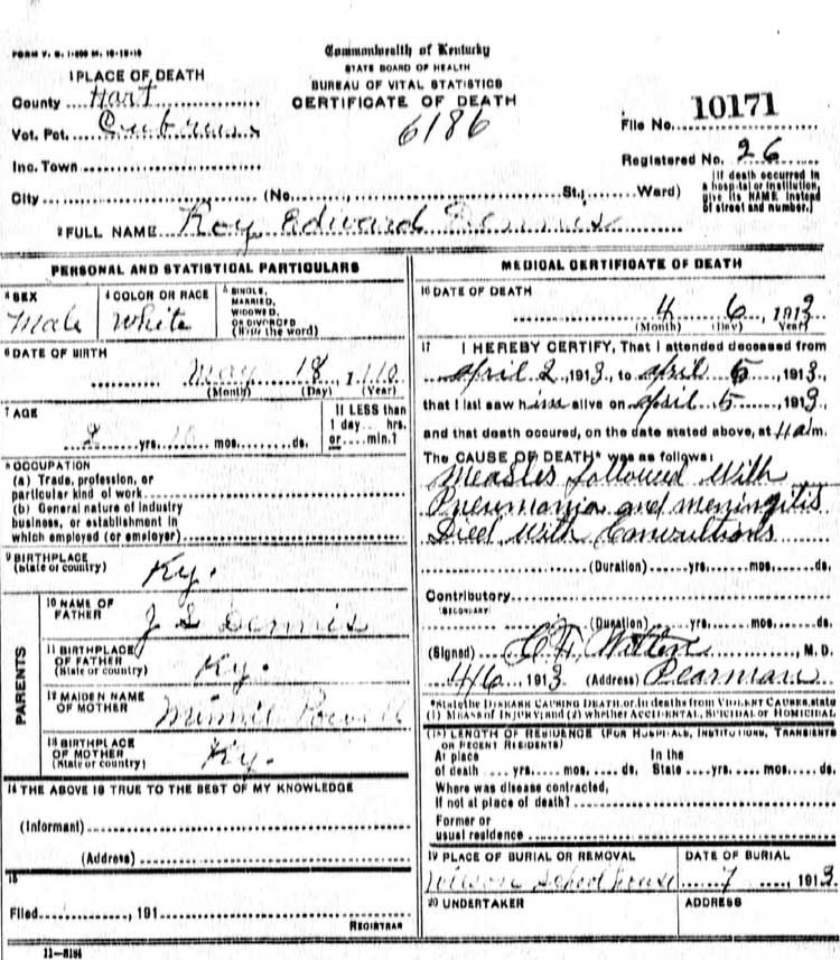 FORM V. S. 1-500 M. 10-18-10
Commonwealth of Kentucky
STATE BOARD OF HEALTH
BUREAU OF VITAL STATISTICS
CERTIFICATE OF DEATH
6186
1 PLACE OF DEATH
County Hart
Vot. Pct.
Inc. Town
City (No. St.; Ward)
File No. 10171
Registered No. 26
[If death occurred in
a hospital or institution,
give its NAME instead
of street and number.]
2 FULL NAME Roy Edward Dennis
PERSONAL AND STATISTICAL PARTICULARS
3 SEX
Male
4 COLOR OR RACE
White
5 SINGLE,
MARRIED,
WIDOWED,
OR DIVORCED
(Write the word)
6 DATE OF BIRTH
May 18, 1910
(Month) (Day) (Year)
7 AGE
2 yrs. 10 mos. ds.
If LESS than
1 day hrs.
or min.?
8 OCCUPATION
(a) Trade, profession, or
particular kind of work
(b) General nature of industry
business, or establishment in
which employed (or employer)
9 BIRTHPLACE
(State or country)
Ky.
PARENTS
10 NAME OF
FATHER
J S Dennis
11 BIRTHPLACE
OF FATHER
(State or country)
Ky.
12 MAIDEN NAME
OF MOTHER
Minnie Powell
13 BIRTHPLACE
OF MOTHER
(State or country)
Ky.
14 THE ABOVE IS TRUE TO THE BEST OF MY KNOWLEDGE
(Informant)
(Address)
15
Filed , 191
REGISTRAR
11-8184
MEDICAL CERTIFICATE OF DEATH
16 DATE OF DEATH
4 6, 1913
(Month) (Day) Year)
17 I HEREBY CERTIFY, That I attended deceased from
April 2, 1913, to April 5, 1913,
that I last saw him alive on April 5, 1913,
and that death occured, on the date stated above, at 4 a m.
The CAUSE OF DEATH* was as follows:
Measles followed with
Pneumonia and meningitis
Died with Convultions
(Duration) yrs. mos. ds.
Contributory
SECONDARY
(Duration) yrs. mos. ds.
(Signed) Witten, M. D.
4/6, 1913 (Address) Pearman
*State the DISEASE CAUSING DEATH, or, in deaths from VIOLENT CAUSES, state
(1) MEANS OF INJURY; and (2) whether ACCIDENTAL, SUICIDAL or HOMICIDAL
(18) LENGTH OF RESIDENCE (FOR HOSPITALS, INSTITUTIONS, TRANSIENTS
OR RECENT RESIDENTS)
At place In the
of death yrs. mos. ds. State yrs. mos. ds.
Where was disease contracted,
if not at place of death?
Former or
usual residence
19 PLACE OF BURIAL OR REMOVAL
Wilson School house
DATE OF BURIAL
7, 1913
20 UNDERTAKER
ADDRESS